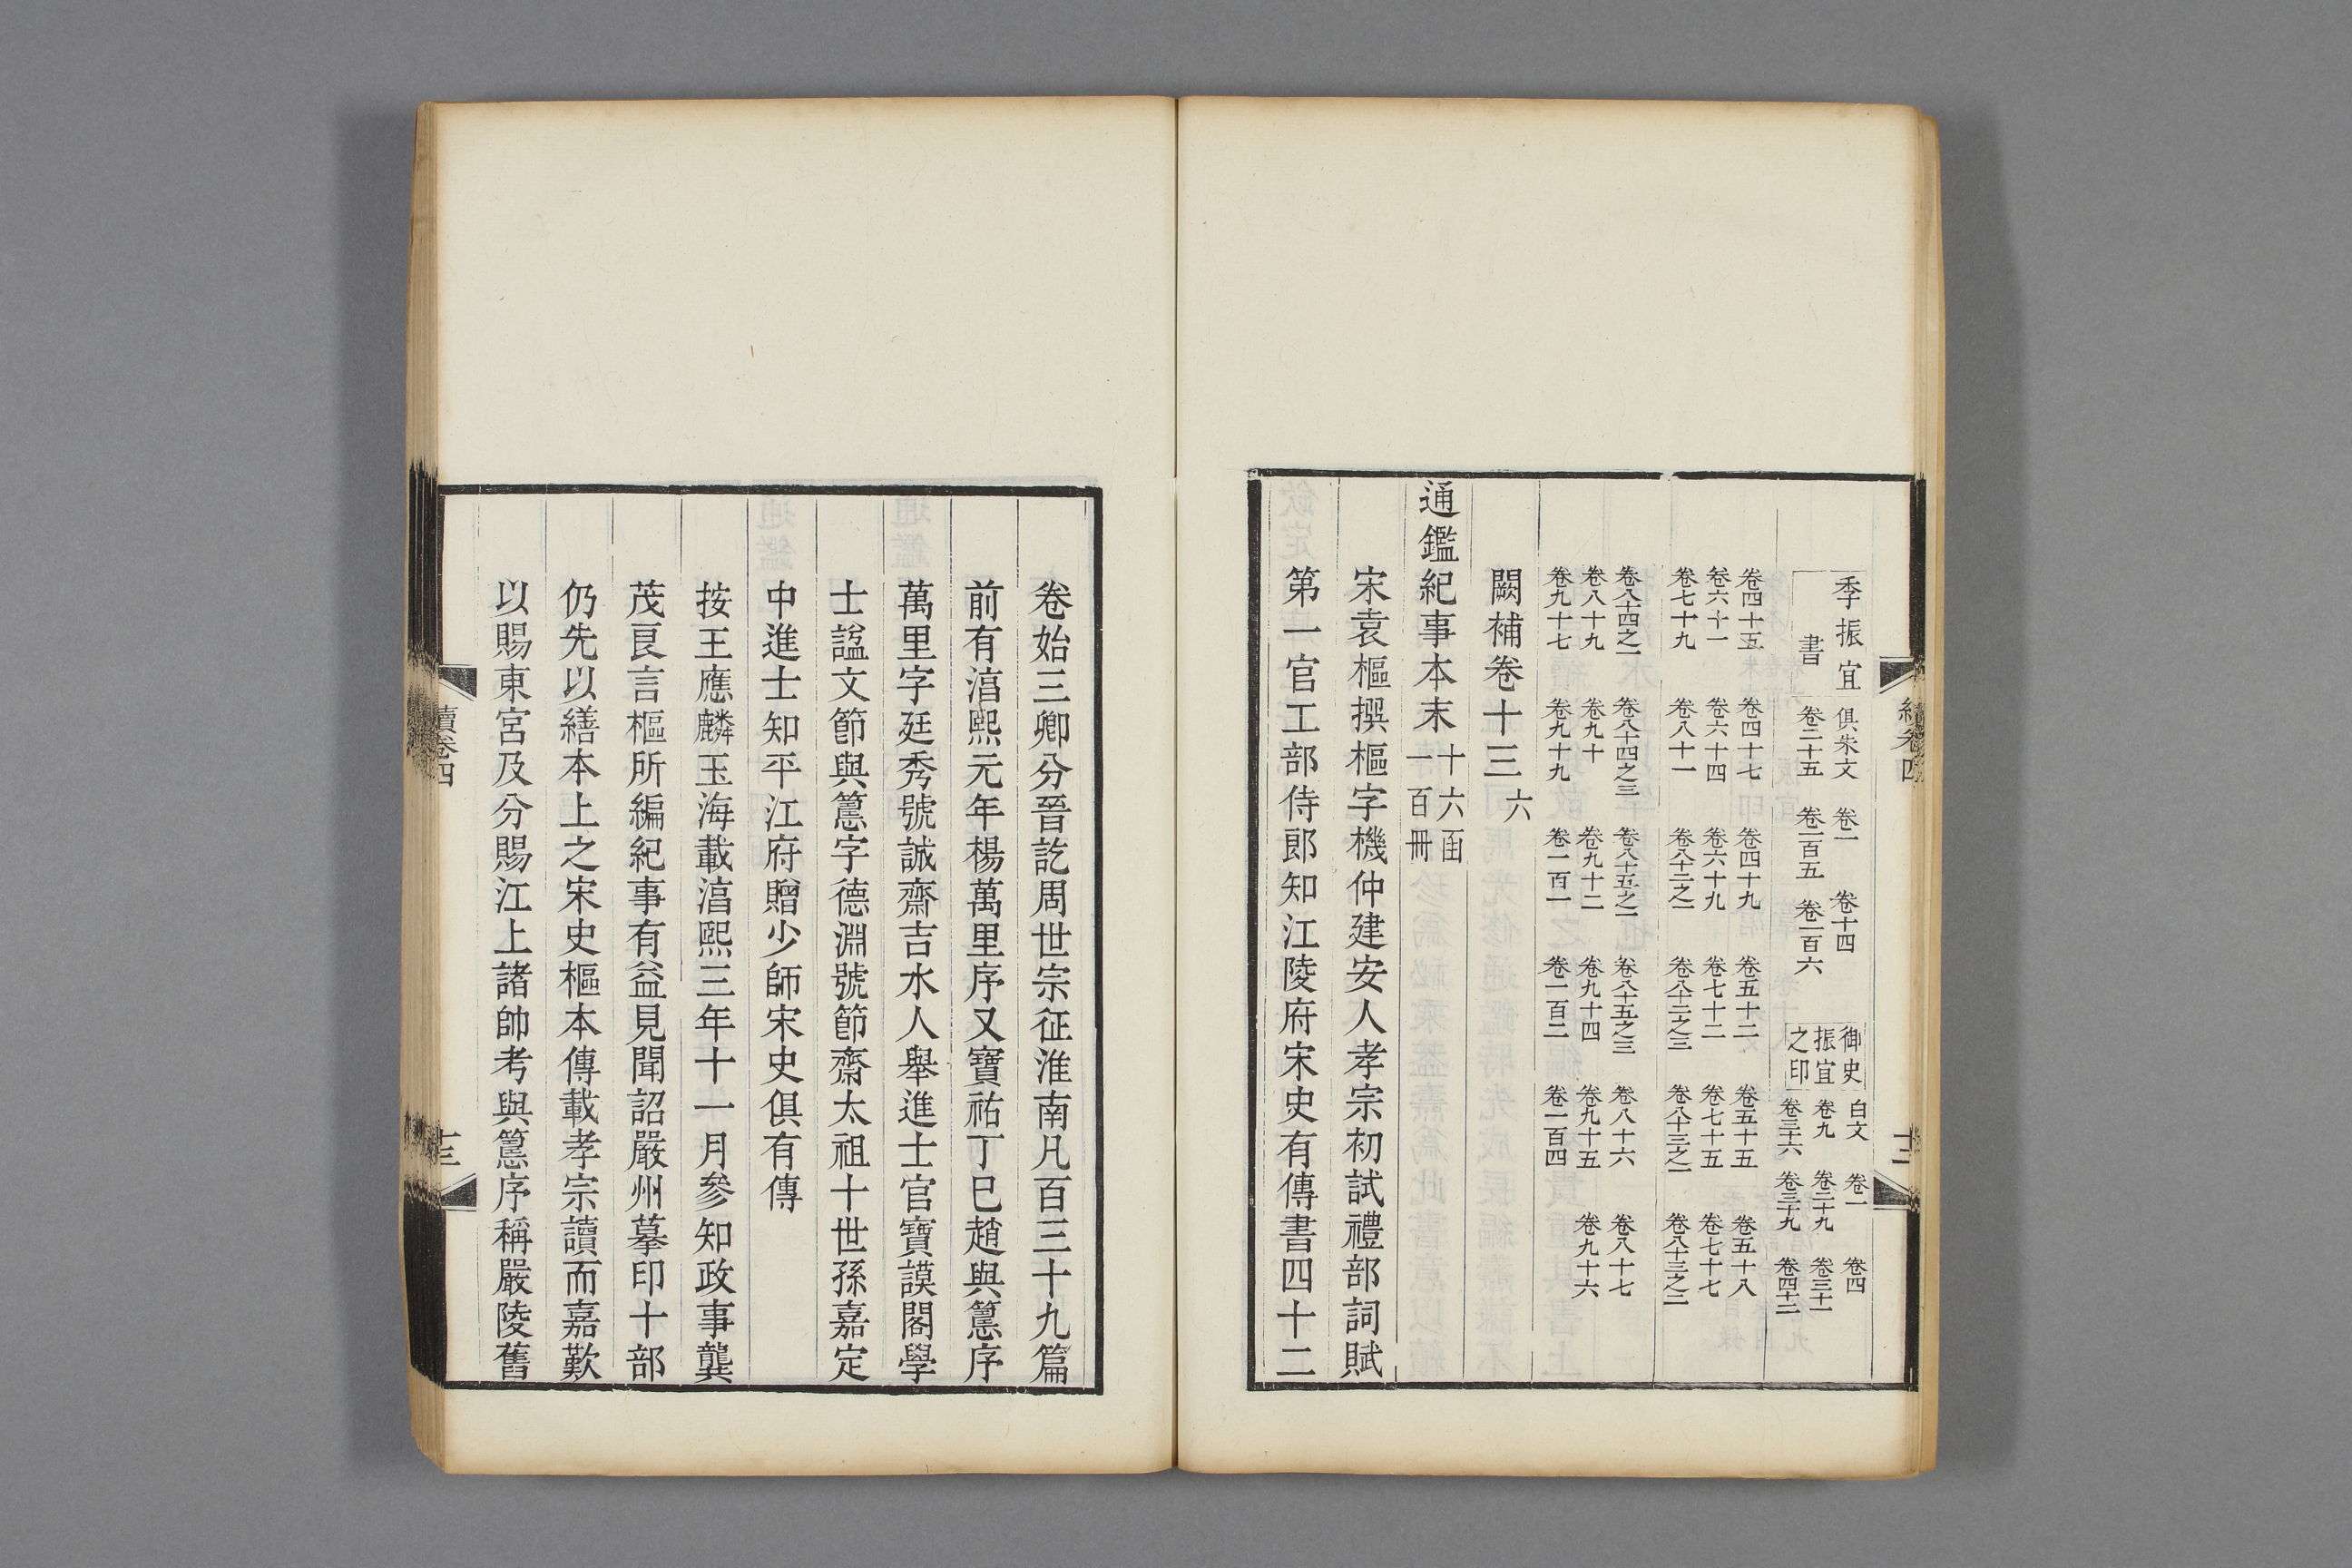 季振宜
書
俱朱文 卷一 卷十四
卷二十五 卷一百五 卷一百六
御史
振宜
之印
白文 卷一 卷四
卷九 卷二十九 卷三十一
卷三十六 卷三十九 卷四十二
卷四十五 卷四十七 卷四十九 卷五十二 卷五十五 卷五十八
卷六十一 卷六十四 卷六十九 卷七十二 卷七十五 卷七十七
卷七十九 卷八十一 卷八十二之一 卷八十二之三 卷八十三之一 卷八十三之二
卷八十四之一 卷八十四之三 卷八十五之一 卷八十五之三 卷八十六 卷八十七
卷八十九 卷九十 卷九十二 卷九十四 卷九十五 卷九十六
卷九十七 卷九十九 卷一百一 卷一百二 卷一百四
闕補卷十三 六
通鑑紀事本末 十六函
一百冊
宋袁樞撰樞字機仲建安人孝宗初試禮部詞賦
第一官工部侍郎知江陵府宋史有傳書四十二
卷始三卿分晉訖周世宗征淮南凡百三十九篇
前有淯熙元年楊萬里序又寶祐丁巳趙與𥲅序
萬里字廷秀號誠齋吉水人舉進士官寶謨閣學
士諡文節與𥲅字德淵號節齋太祖十世孫嘉定
中進士知平江府贈少師宋史俱有傳
按王應麟玉海載淯熙三年十一月參知政事龔
茂良言樞所編紀事有益見聞詔嚴州摹印十部
仍先以繕本上之宋史樞本傳載孝宗讀而嘉歎
以賜東宮及分賜江上諸帥考與𥲅序稱嚴陵舊
續卷四
十三